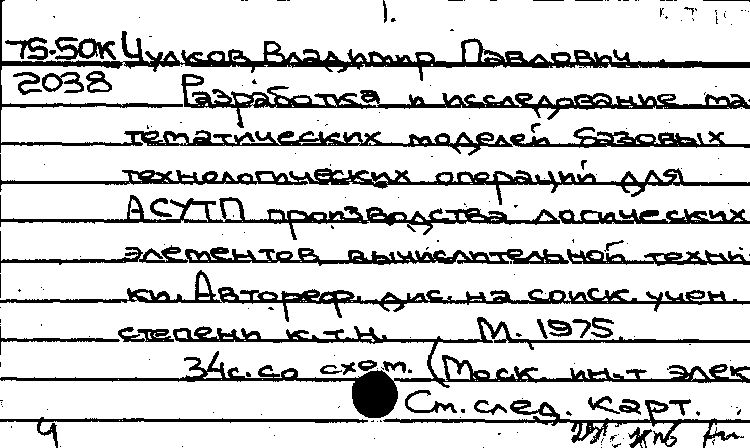 1.
75-50К Чулков, Владимир Павлович
2038 Разработка и исследование ма-
тематических моделей базовых
технологических операций для
АСУТП производства логических
элементов вычислительной техни-
ки. Автореф. дис. на соиск. учен.
степени к.т.н. М., 1975.
34с. со схем. (Моск. ин-т элек
См. след. карт.
Ч